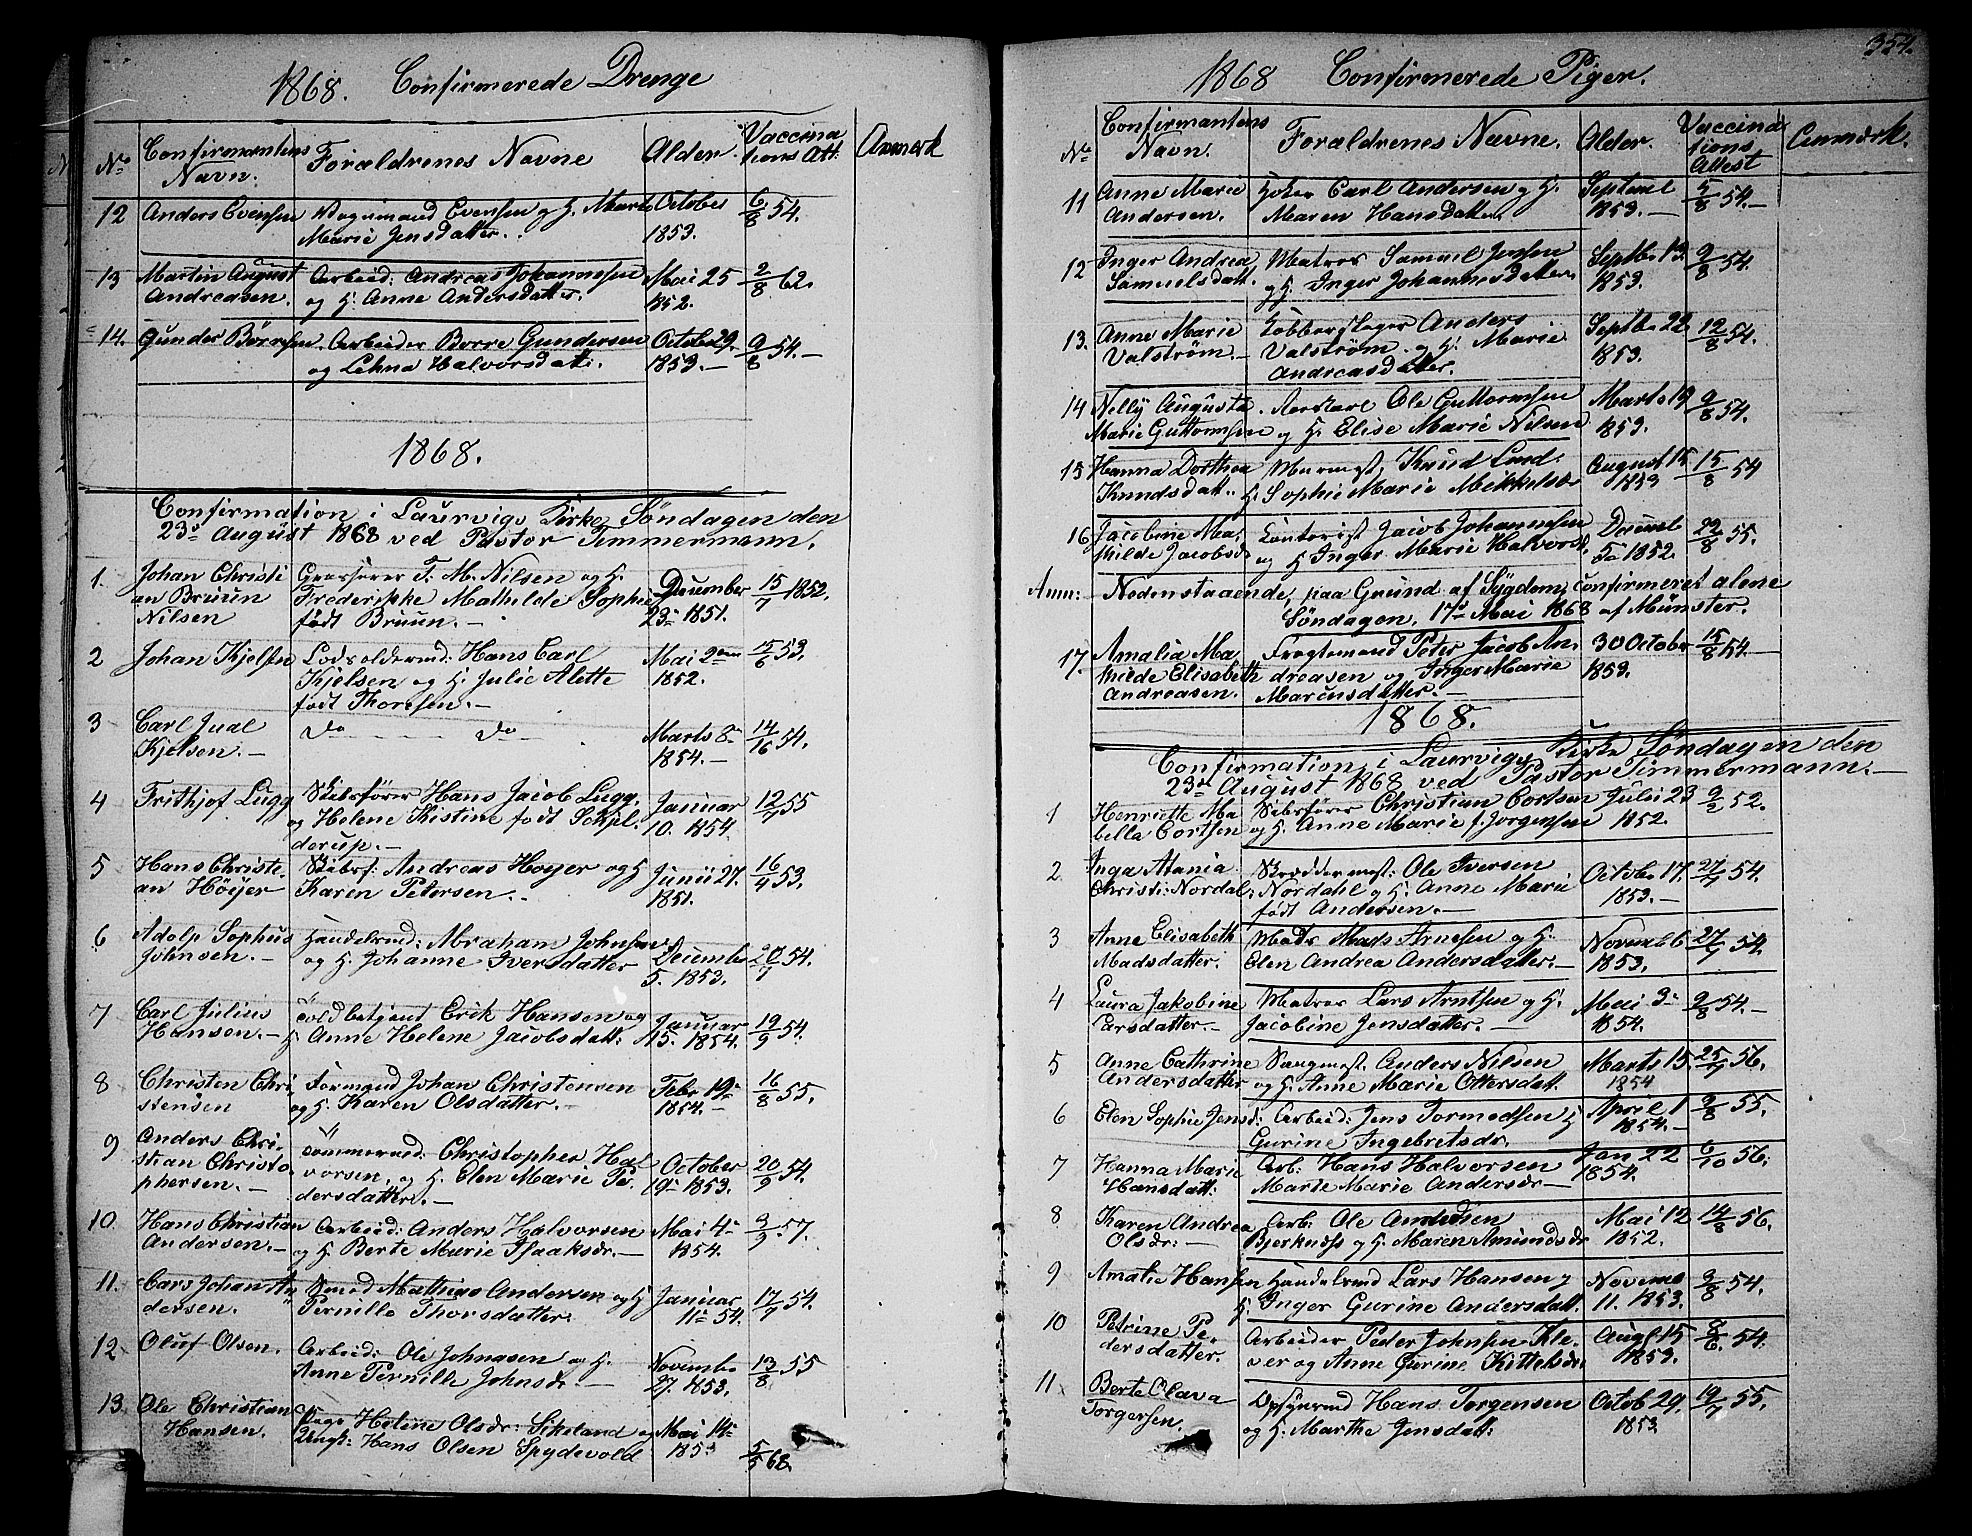 1868. Confirmerede Drenge
No Confirmantens Navn. Forældrenes Navne Alder. Vaccinations Att: Anmærk
12 Anders Evensen Evensen og H. Marte October 6/8 54.
Marie Jensdatter. 1853.
13 Martin August Arbeid: Andreas Johannesen Mai 25 2/8 62.
Andreasen. og H. Anne Andersdatter. 1852.
14. Gunder Børresen. Arbeider Børre Gundersen October 29. 9/8 54.—
og Lehna Halvorsdatt: 1853.—
1868.
Confirmation i Laurvigs Kirke Søndagen den
23de August 1868 ved Pastor Timmermann.
1. Johan Christi T. M. Nilsen og H. December 15/7 1852.
an Bruun Frederikke Mathilde Sophie 23de 1851.
Nilsen født Bruun.—
2 Johan Kjelsen Lodsoldermd: Hans Carl Mai 2den 15/6 53.
Kjelsen og H. Julie Alette 1852.
født Thoresen.—
3 Carl Jual do do Marts 8de 14/16 54.
Kjelsen.— 1854.—
4 Frithjof Lugg Skibsfører Hans Jacob Lugg, Januar 12/7 55
og Helene Kistine født Schjel- 10. 1854.
derup.—
5 Hans Christi- Skibsf: Andreas Høyer og H Junii 27. 16/4 53.
an Höyer Karen Petersen.. 1851.
6 Adolp Sophus Handelsmd: Abraham Johnsen December 20/7 54.
Johnsen.— og H. Johanne Iversdatter 5. 1853.
7 Carl Julius Toldbetjent Erik Hansen og Januar 19/9 54.
Hansen.— H. Anne Helene Jacobsdatt: 15. 1854.
8 Christen Chri Formand Johan Christensen Febr 19de 16/8 55.
stensen og H. Karen Olsdatter.— 1854.—
9 Anders Chri- Tømmermd: Christopher Hal October 20/9 54.
stian Christo vorsen, og H. Elen Marie Pe 19de 1853.
phersen.— dersdatter.—
10. Hans Christian Arbeid: Anders Halvorsen Mai 4de 9/9 57.
Andersen.— og H. Berte Marie Isaaksdr.— 1854.
11. Lars Johan An Smed Mathias Andersen og H Januar 17/7 54.
dersen. Pernille Thorsdatter. 11te 54.
12 Oluf Olsen. Arbeid: Ole Johnasen og H. Novemb. 13/8 55
Anne Pernille Johnsdr.— 27. 1853.
13. Ole Christian Pige Helene Olsdr: Sikeland og Mai 14de
Hansen. Ungk: Hans Olsen Spydevold 1853 5/5 68.
354.
1868 Confirmerede Piger.
No Confirmantens Navn. Forældrenes Navne. Alder. Vaccinations Attest Anmærk.
11 Anne Marie Carl Andersen og H. Septemb 5/8 54.—
Andersen. Maren Hansdatter. 1853.—
12 Inger Andrea Matros Samuel Jensen Septb. 13. 9/8 54.
Samuelsdatt. og H. Inger Johannesdatter. 1853.
13. Anne Marie Kobberslager Anders Septb. 22. 12/8 54.
Valstrøm.— Valstrøm og H. Marie 1853.
Andreasdatter.
14 Nelly Augusta Ole Guttormsen Marts 19 9/8 54.
Marie Guttormsen og H. Elise Marie Nilsen 1853.
15 Hanna Dorthea Murmst. Knud Lund August 15 15/8 54
Knudsdatt.. H. Sophie Marie Mikkelsdr 1853
16 Jacobine Ma- Kontorist Jacob Johannesen Decemb 22/8 55.
thilde Jacobsdr og H. Inger Marie Halvorsd. 5te 1852.
Anm: Nedenstaaende, paa Grund af Sygdom, confirmeret alene
Søndagen, 17de Mai 1868 af Münster.
17. Amalia Ma Fragtemand Peter Jacob An- 30 October 15/8 54.—
thilde Elisabeth dreasen og Inger Marie 1853.
Andreasen. Marcusdatter.—
1868.
Confirmation i Laurvigs Kirke Søndagen den
23de August 1868 ved Pastor Timmermann.—
1 Henriette Ma Skibsfører Christian Cortsen Julii 23 9/2 52.
bella Cortsen og H. Anne Marie f. Jørgensen 1852.
2 Inga Atania Skreddermest: Ole Iversen Octobr 17. 27/7 54.
Christi: Nordal. Nordahl og H. Anne Marie 1853.—
født Andersen.—
3 Anne Elisabeth Mads Arnesen og H. Novemb 6 27/7 54.
Madsdatter. Elen Andrea Andersdatter.— 1853.
4 Laura Jakobine Matros Lars Arntsen og H. Mai 3de 9/8 54.—
Larsdatter.— Jacobine Jensdatter.— 1854.
5 Anne Cathrine Saugmest. Anders Nilsen Marts 15. 25/7 56.
Andersdatter og H. Anne Marie Ottersdatt. 1854
6 Elen Sophie Jensd: Arbeid: Jens Tormodsen H April 1 9/8 55.
Gurine Ingebretsdr. 1854.—
7 Hanna Marie Arb: Hans Halvorsen Jan 22 6/10 56.
Hansdatt: Marte Marie Andersdr— 1854.
8 Karen Andrea Arb: Ole Andersen Mai 12 14/8 56.
Olsdr:— Bjerknæss og H. Maren Amundsdr 1852.
9 Amalie Hansen Handelsmd Lars Hansen og Novemb 9/8 54.
H. Inger Gurine Andersdatt. 11. 1853.
10 Petrine Pe- Arbeider Peder Johnsen Kle- Augt 15 8/6 54.
dersdatter. ver og Anne Gurine Kittelsdr. 1853.
11. Berte Olava Opsynsmd Hans Torgersen Octob 29. 19/7 55.
Torgersen. og H. Marthe Jensdatt: 1853